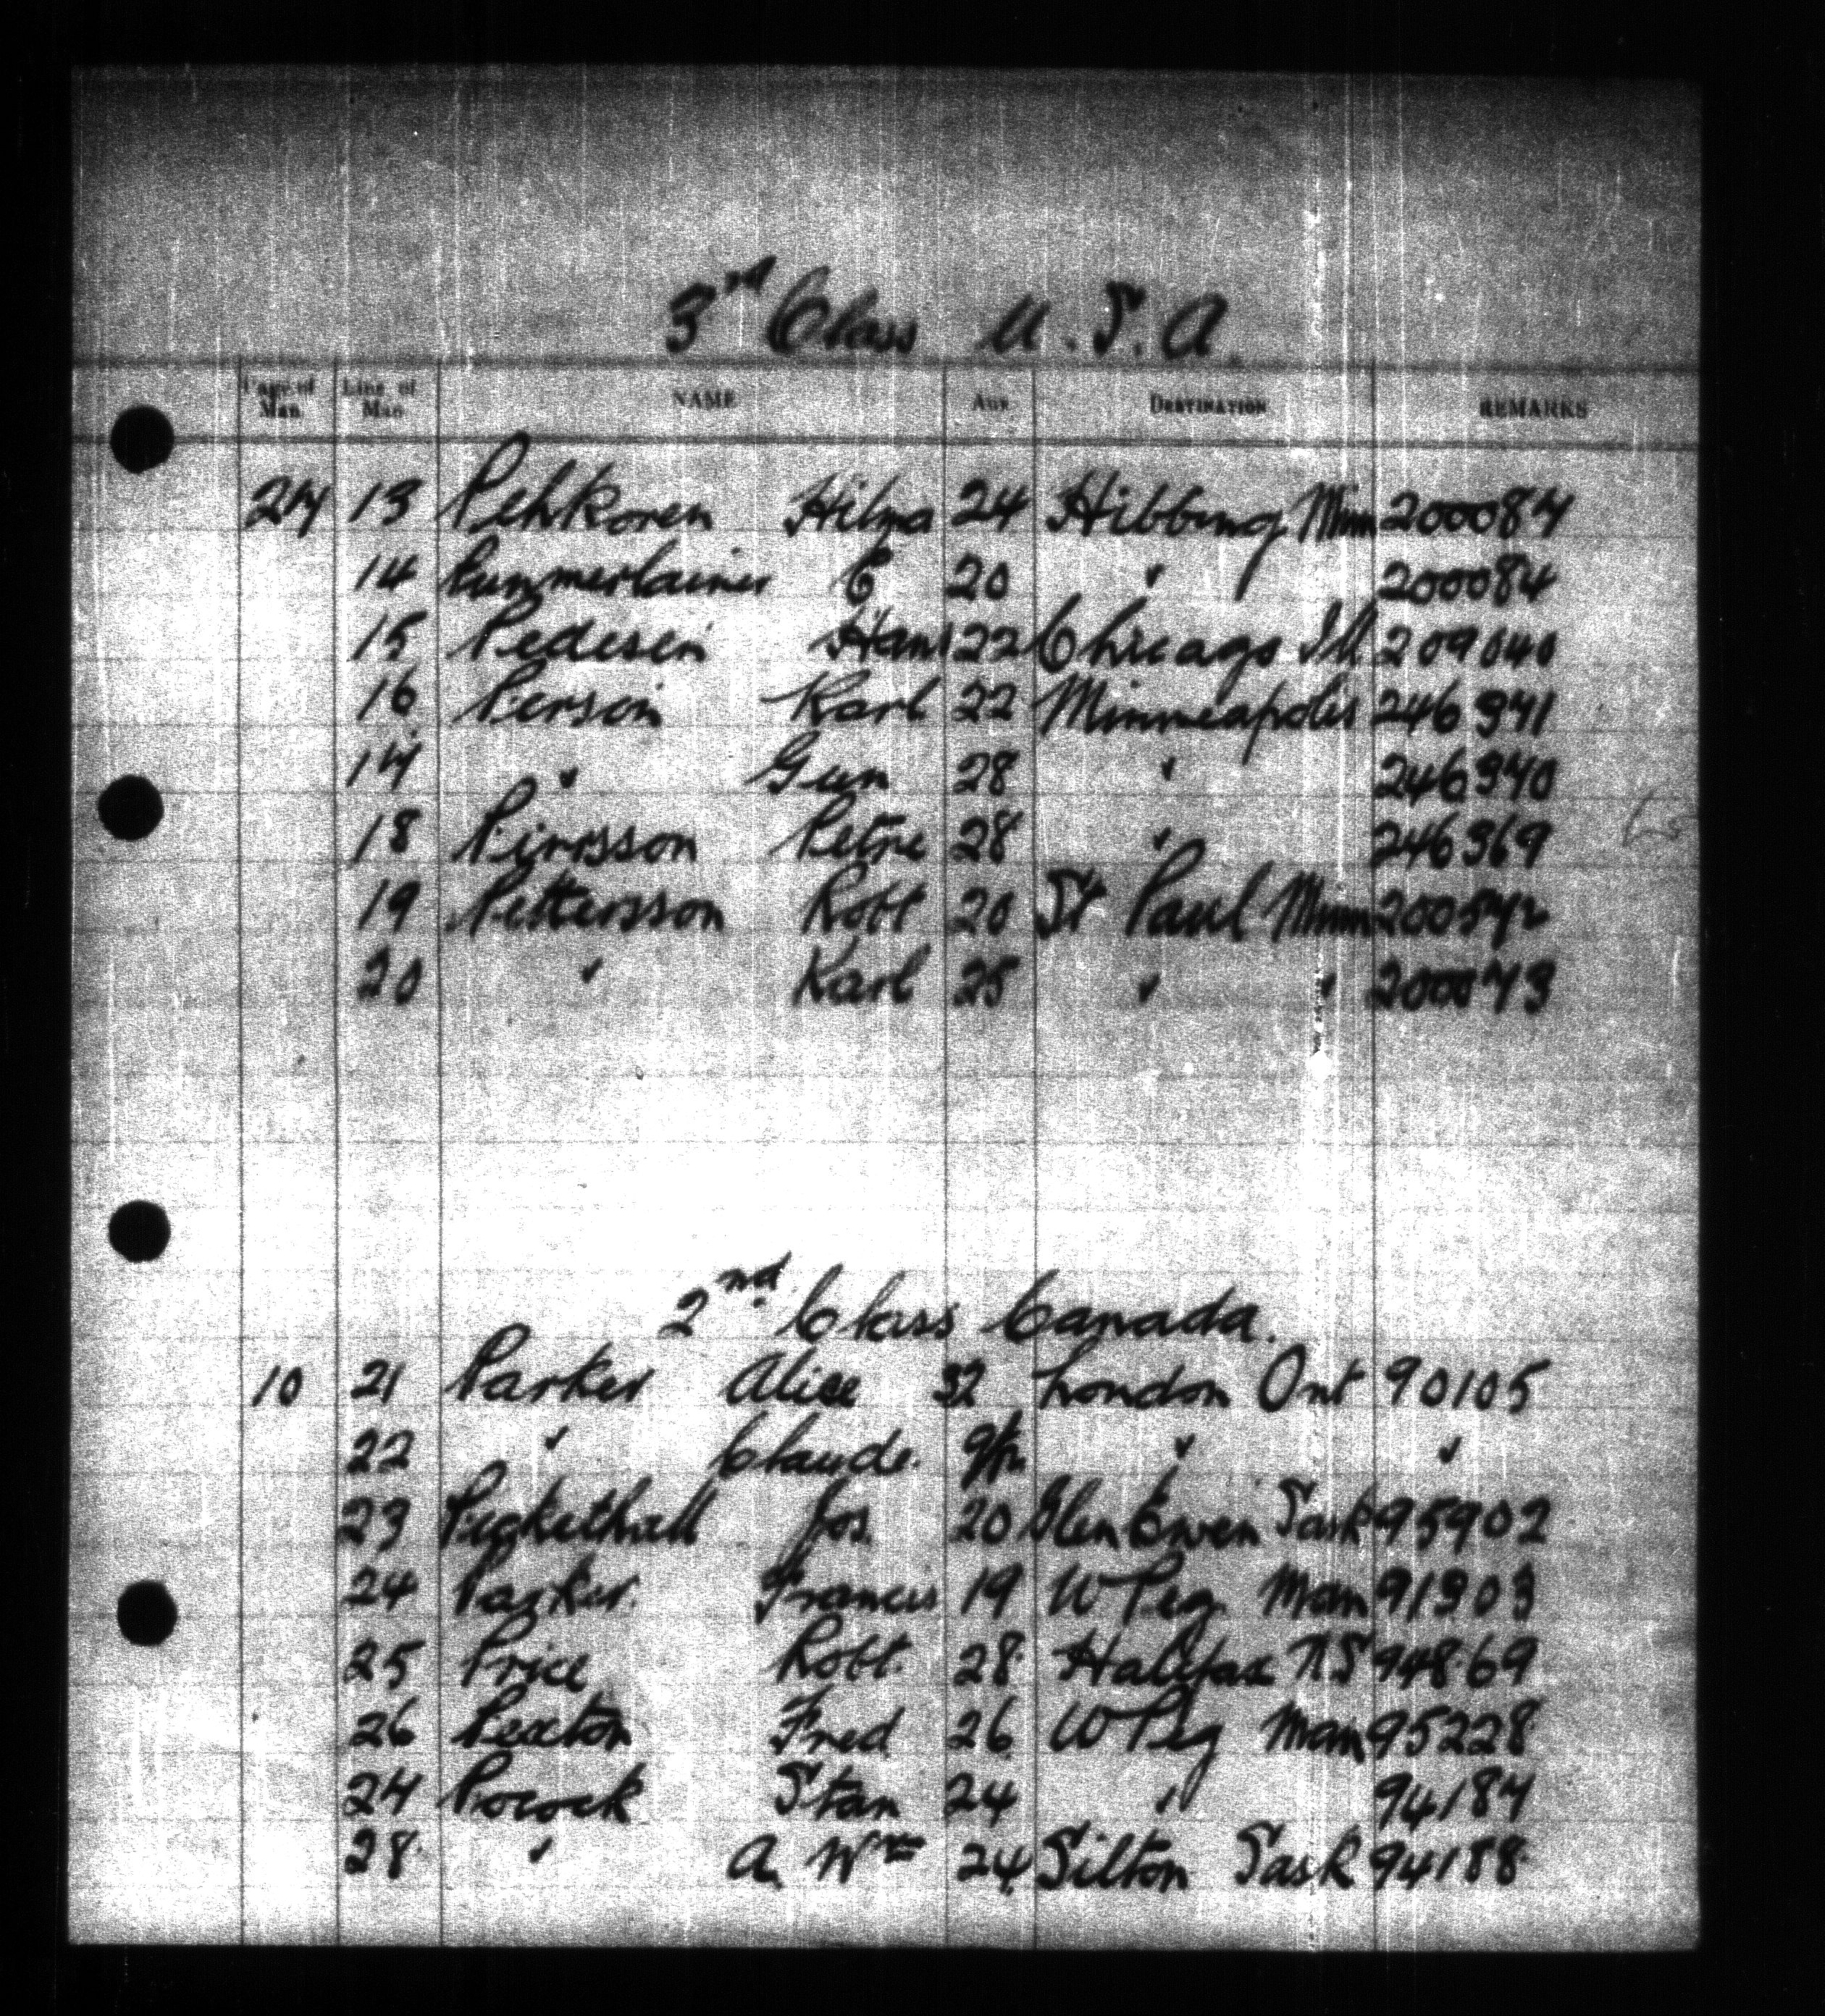 3rd Class U.S.A.
Page of Man. Line of Man NAME AGE DESTINATION REMARKS
27 13 Pehkoren Hilma 24 Hibbing Minn 200087
14 E 20 " 200084
15 Pedesen Hans 22 Chicago Ill 209040
16 Person Karl 22 Minneapolis 246941
17 " Gun 28 " 246940
18 Petre 28 " 246369
19 Pettersson Robt 20 St Paul Minn 200572
20 " Karl 25 " " 200073
2nd Class Canada.
10 21 Parker Alice 32 London Ont 90105
22 " Claude. " "
23 Pickethall Jos. 20 Glen Ewen Sask 95902
24 Parker. Francis 19 W Peg. Man 91303
25 Price Robt. 28 Halifax NS 94869
26 Pexton Fred 26 W Peg Man 95228
27 Pocock Stan 24 " 94187
28 " A. Wm 24 Silton Sask 94188